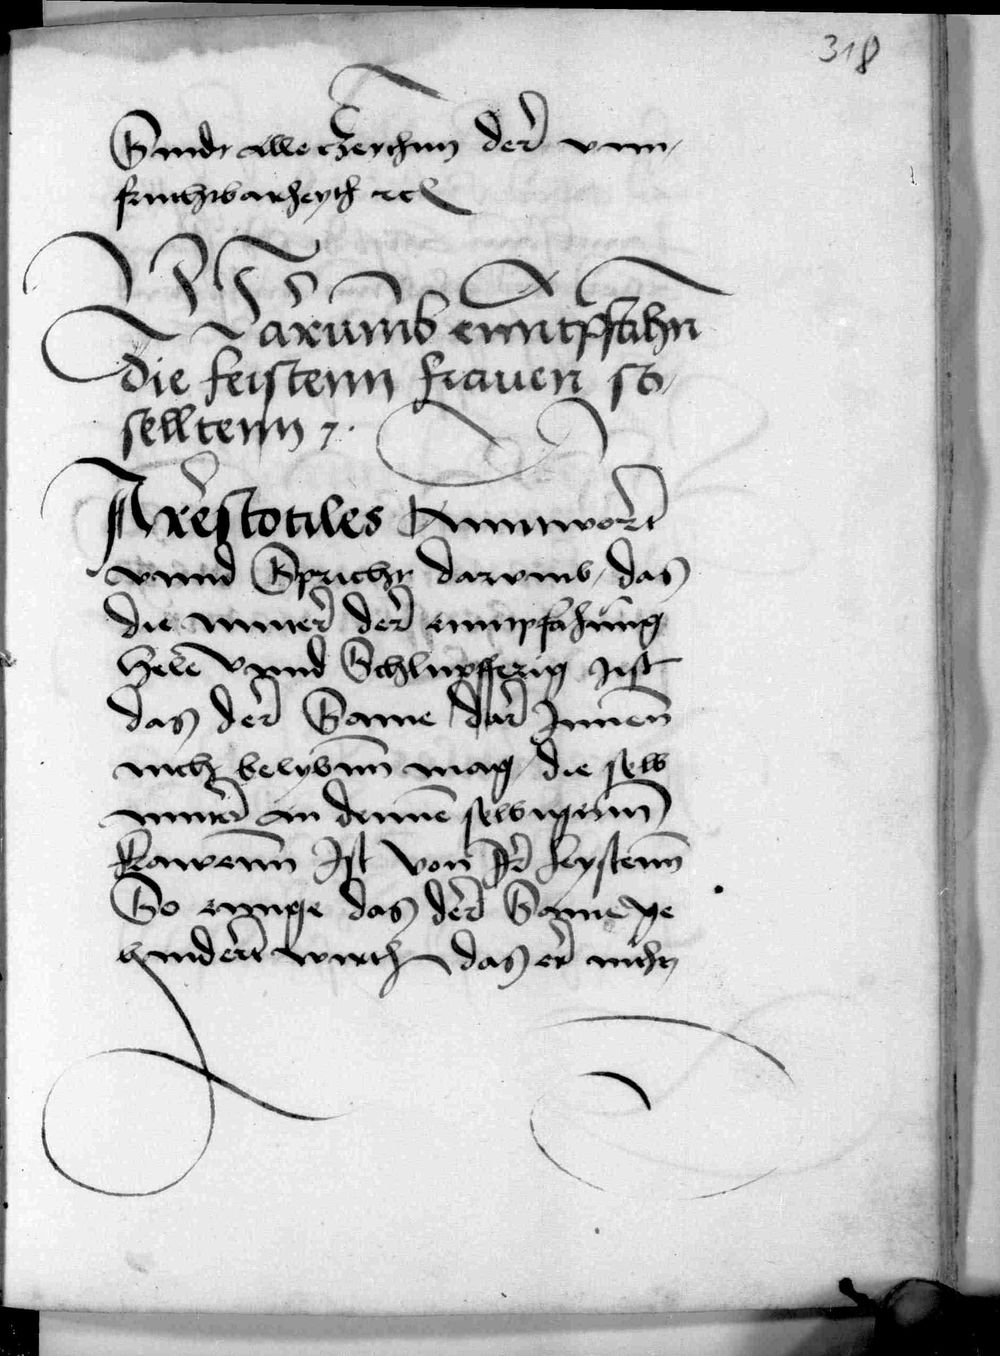 318
Sindt alle zeychnn der vnn,
fruchtbarheyth etc
Warumb enntpfahn
die feistenn frauen so,
selltenn ?.
Arestotiles Anntwort
vnnd Spricht darumb, das
die mutter der enntpfahung
hele vnnd Schlupfferig ist
das der Same dar Innen
nith belybnn mag, die selb
mutter an dennen selbigenn
frawenn Ist von Ir feystenn
So ennge das der Same ge
hindert wirth das er nicht